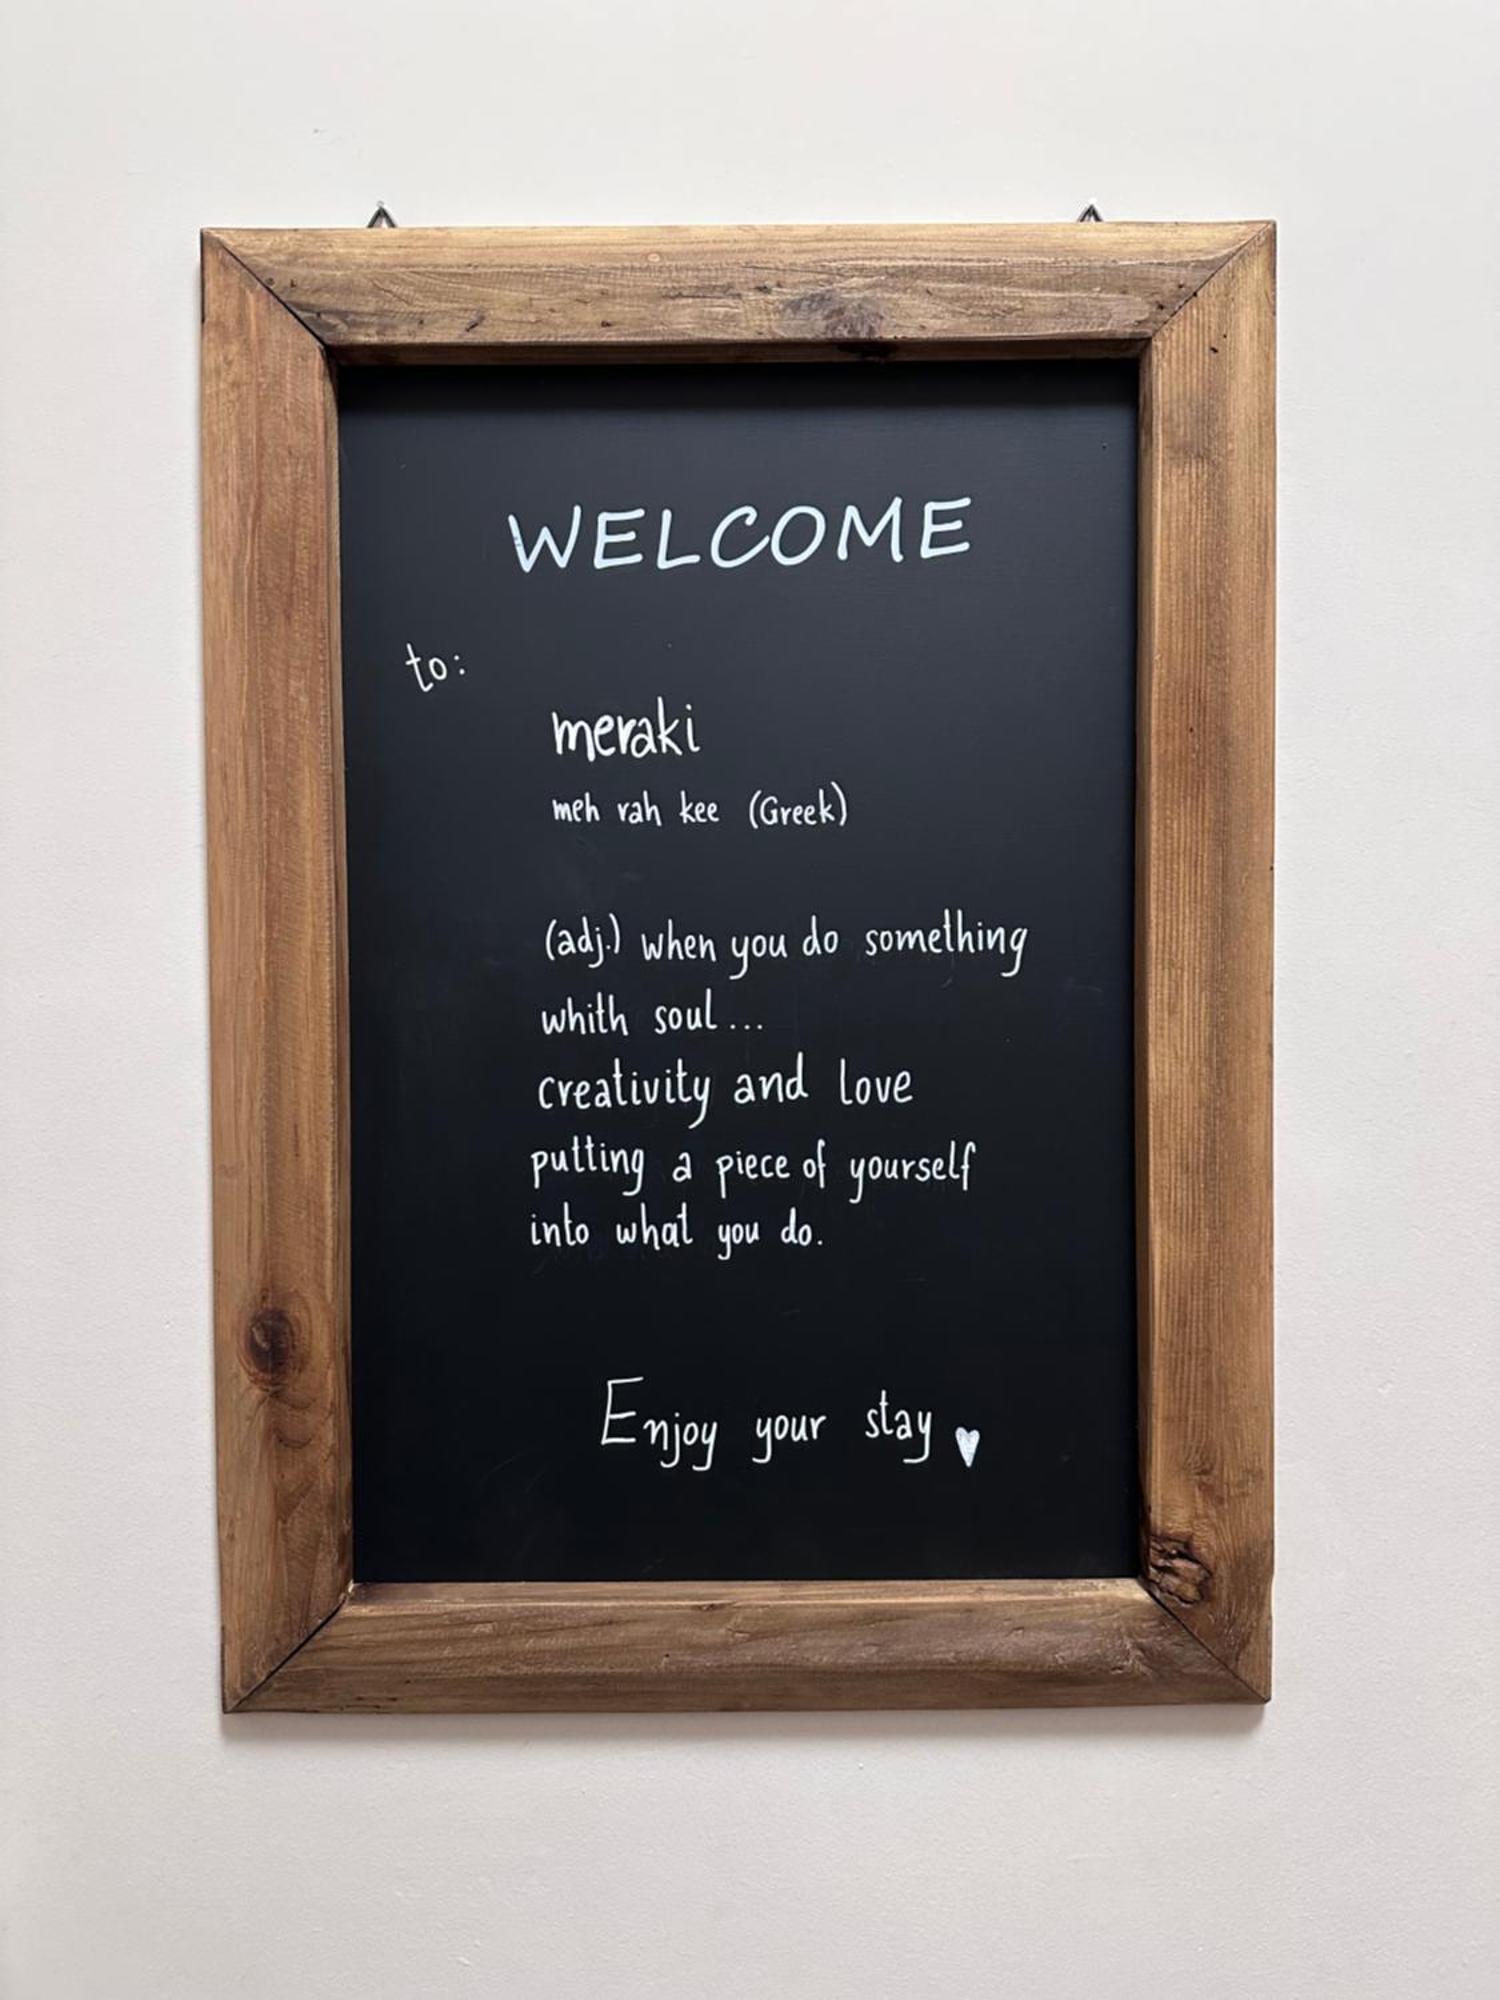 WELCOME
to:
meraki
meh rah kee (Greek)
(adj.) when you do something
whith soul...
creativity and love
putting a piece of yourself
into what you do.
Enjoy your stay